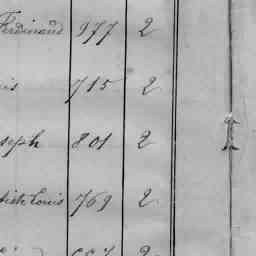 Ferdinand 977 2
is 715 2
seph 801 2
tish Louis 769 2
2